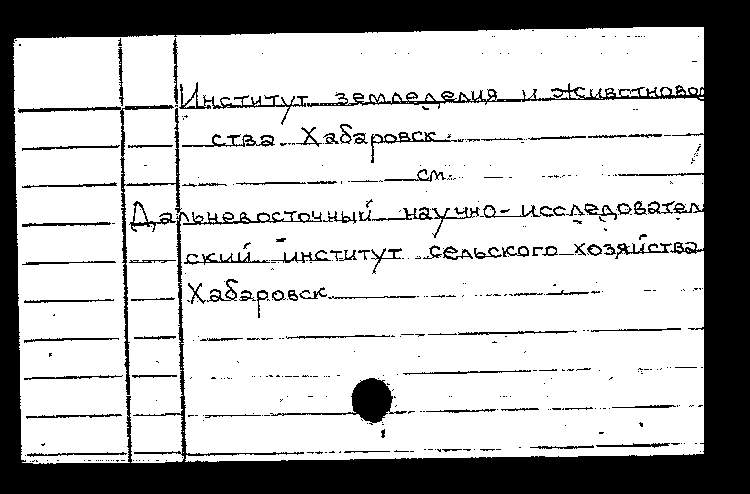 Институт земледелия и животновод
ства. Хабаровск.
см.
Дальневосточный научно-исследовател
ский институт сельского хозяйства
Хабаровск